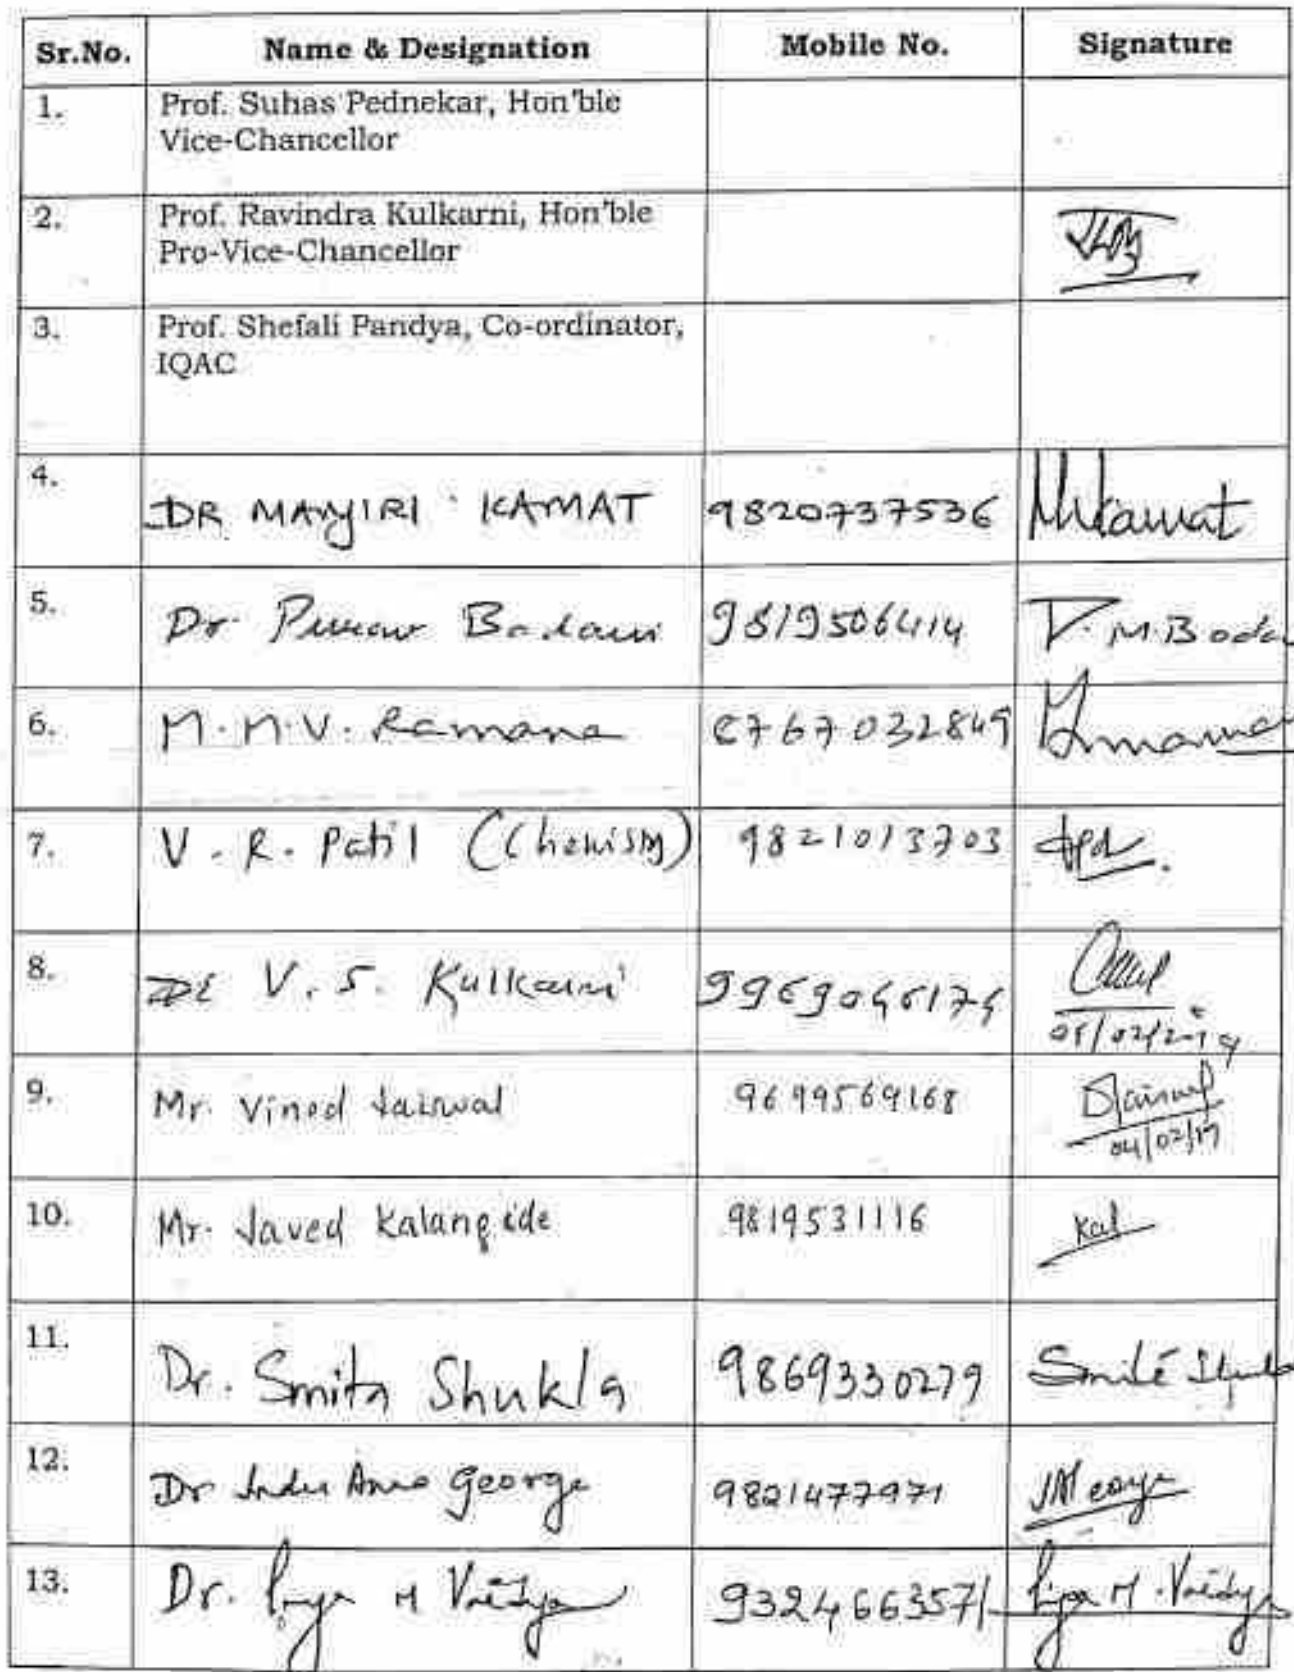 Sr.No. Name & Designation Mobile No. Signature
1. Prof. Suhas Pednekar, Hon'ble
Vice-Chancellor
2. Prof. Ravindra Kulkarni, Hon'ble
Pro-Vice-Chancellor
3. Prof. Shefali Pandya, Co-ordinator,
IQAC
4. DR MANJIRI KAMAT 9820737536 Mkamat
5. Dr. Badani 9819506414
6. M.M.V. Ramana
7. V. R. Patil (Chemistry) 9821013703
8. Dr V. S. Kulkarni
9. Mr. Vinod Jaiswal 9699569168
04/02/19
10. Mr. Javed 9819531116 Kal
11. Dr. Smita Shukla 9869330279
12. Dr Indu Anna George 9821477971
13. Dr. M Vaidya 9324663571 M. Vaidya